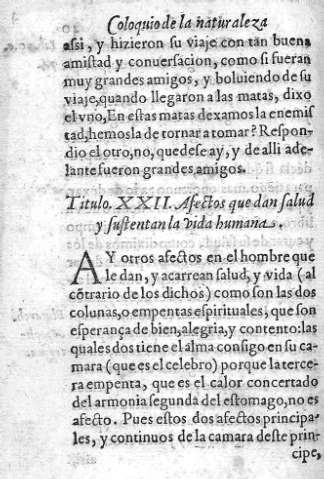 Coloquio de la naturaleza
assi, y hizieron su viaje con tan buena
amistad y conuersacion, como si fueran
muy grandes amigos, y boluiendo de su
viaje, quando llegaron a las matas, dixo
el vno, En estas matas dexamos la enemis
tad, hemosla de tornar a tomar? Respon-
dio el otro, no, quedese ay, y de alli ade-
lante fueron grandes amigos.
Titulo. XXII. Afectos que dan salud
y sustentan la vida humana.
AY otros afectos en el hombre que
le dan, y acarrean salud, y vida (al
cõtrario de los dichos) como son las dos
colunas, o empentas espirituales, que son
esperança de bien, alegria, y contento: las
quales dos tiene el alma consigo en su ca-
mara (que es el celebro) porque la terce-
ra empenta, que es el calor concertado
del armonia segunda del estomago, no es
afecto. Pues estos dos afectos principa-
les, y continuos de la camara deste prin-
cipe,